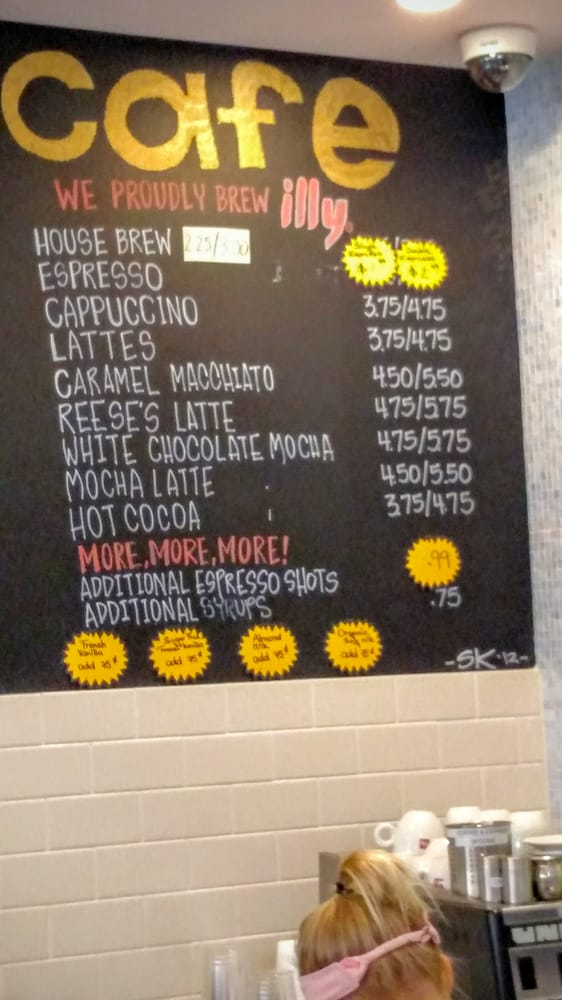 cafe
WE PROUDLY BREW illy
HOUSE BREW 2.25/3.00
ESPRESSO Single Espresso $ Double Espresso $2
CAPPUCCINO 3.75/4.75
LATTES 3.75/4.75
CARAMEL MACCHIATO 4.50/5.50
REESE'S LATTE 4.75/5.75
WHITE CHOCOLATE MOCHA 4.75/5.75
MOCHA LATTE 4.50/5.50
HOT COCOA 3.75/4.75
MORE, MORE, MORE!
ADDITIONAL ESPRESSO SHOTS .99
ADDITIONAL SYRUPS .75
French Vanilla add 75¢
Sugar Free French Vanilla add 75¢
Almond Milk add 75¢
Organic Soy Milk add 75¢
-SK-12-